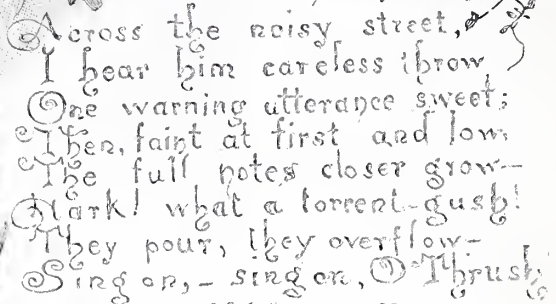 Across the noisy street,
I hear him careless throw
One warning utterance sweet;
Then, faint at first and low,
The full notes closer grow—
Hark! what a torrent-gush!
They pour, they overflow—
Sing on, — sing on, O Thrush